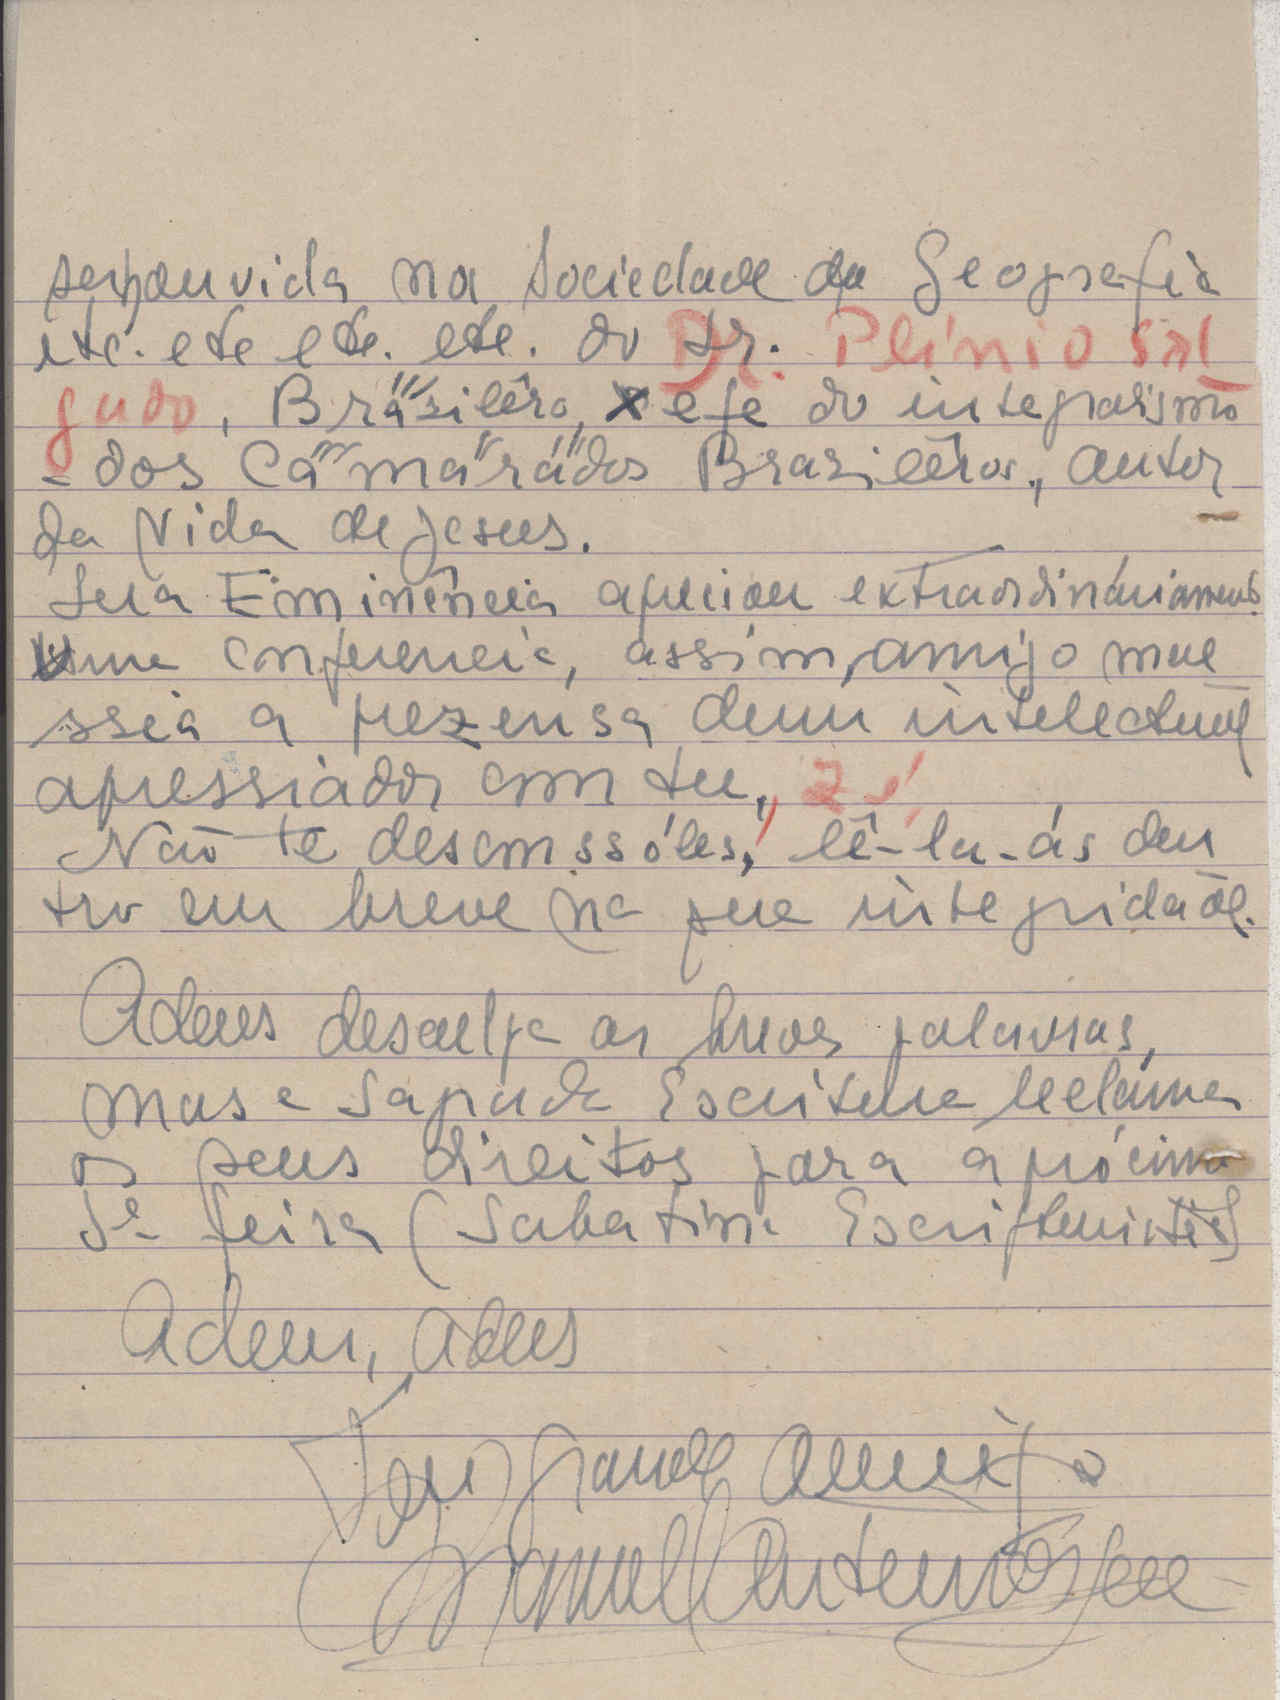 na Sociedade da Geografia
etc. etc etc. etc. do Dr. Plínio Sal
gado, Brázilêro, xefe do integralismo
- dos Cámárádos Brazilêros, autor
da Vida de Jesus.
Sua Eminência apreciou extraordináriament.
uma conferencia, assim, amigo mere
ssia a prezensa dum intelectual
apressiador como tu, Zé!
Não te desconssóles, lê-la-ás den
tro em breve na sua integridade.
Adeus desculpa as breves palavras,
mas a Sagrada Escritura reclama
os seus direitos para a prócima
5ª feira (Sabatina
Adeus, Adeus
Teu grande Amigo
Manuel António